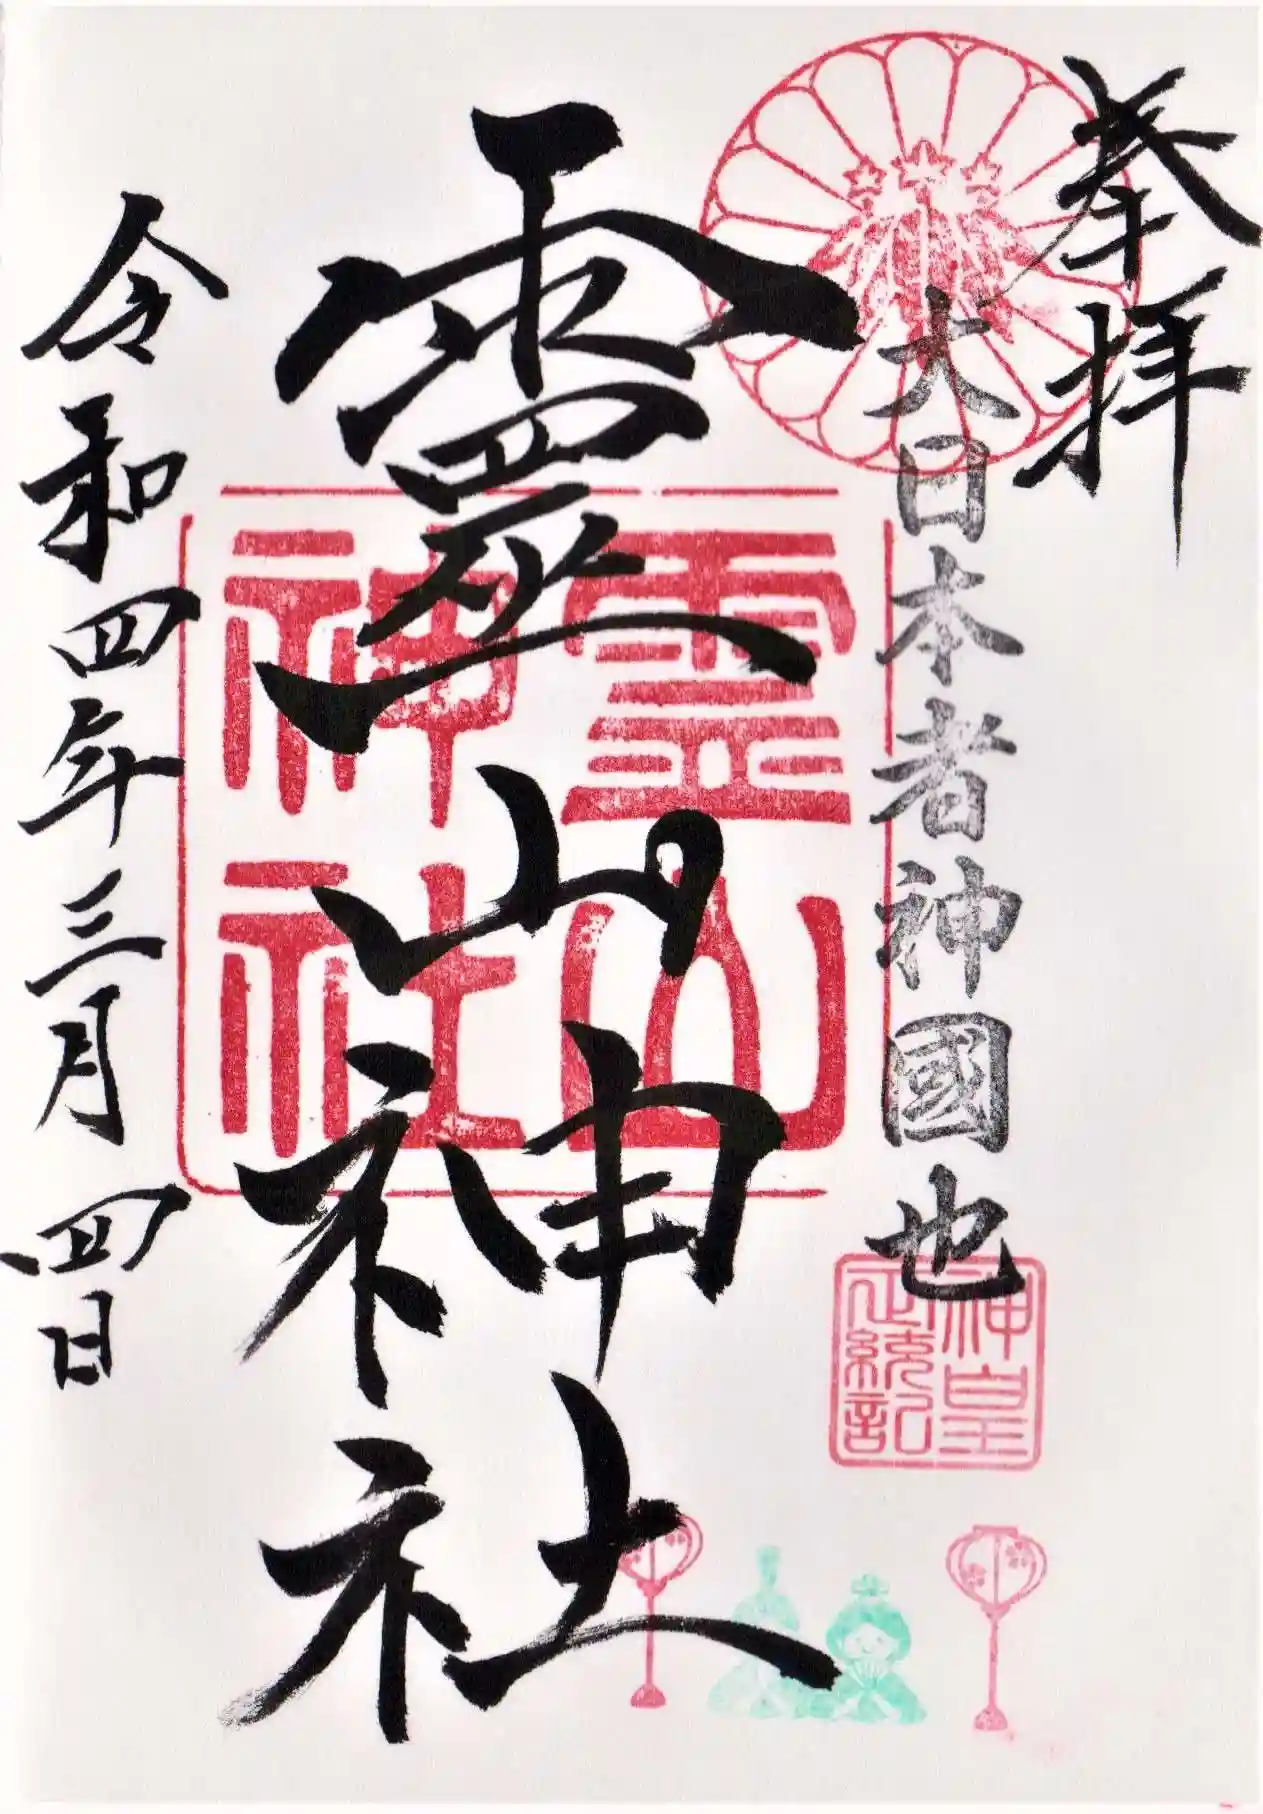 奉拝
大日本者神國也
神皇
正統記
靈山神社
霊山
神社
令和四年三月四日